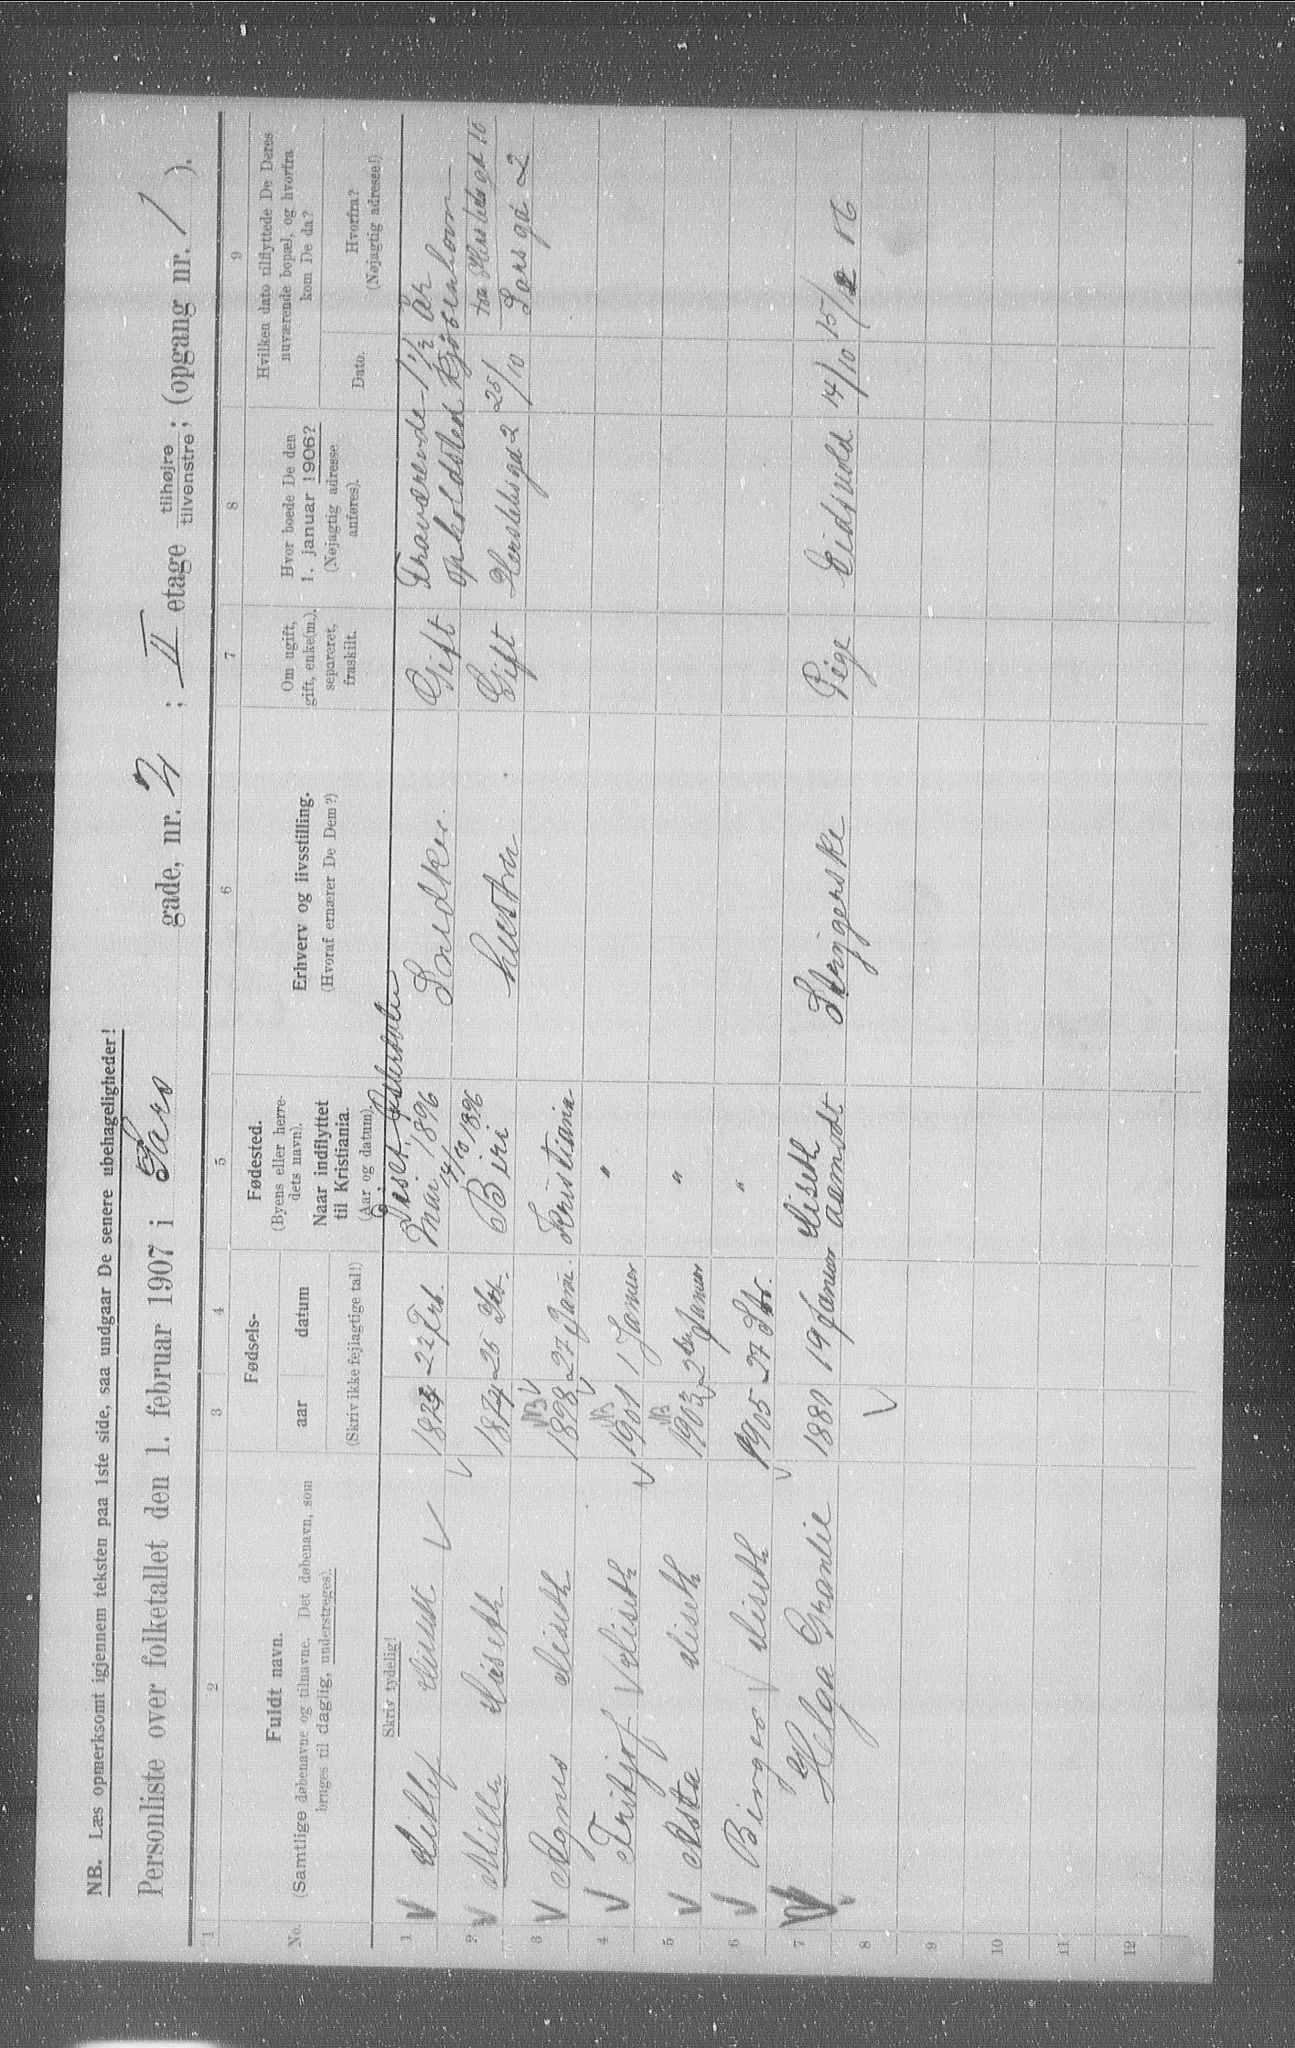 NB. Læs opmerksomt igjennem teksten paa 1ste side, saa undgaar De senere ubehageligheder!
Personliste over folketallet den 1. februar 1907 i Lars gade, nr. 2; II etage tilhøjre tilvenstre; (opgang nr. 1).
1 2 3 4 5 6 7 8 9
No.
Fuldt navn.
(Samtlige døbenavne og tilnavne. Det døbenavn, som
bruges til daglig, understreges).
Fødsels-
aar datum
(Skriv ikke fejlagtige tal!)
Fødested.
(Byens eller herre-
dets navn).
Naar indflyttet
til Kristiania.
(Aar og datum).
Erhverv og livsstilling.
(Hvoraf ernærer De Dem?)
Om ugift,
gift, enke(m.),
separeret,
fraskilt.
Hvor boede De den
1. januar 1906?
(Nøjagtig adresse
anføres).
Hvilken dato tilflyttede De Deres
nuværende bopæl, og hvorfra
kom De da?
Dato.
Hvorfra?
(Nøjagtig adresse!)
Skriv tydelig!
1 22 Feb. Mai 1896 Gift Fraværende 1 1/2 År
opholdsted Kjøbenhavn
2 Milla Miseth 1874 Biri hustru Gift Herslebsgd 2 25/10 fra Herslebsgd 10
Larsgd 2
3 Agnes Miseth 1898 27 Jan. Kristiania
4 Fritjof Miseth 1901 1 Januar "
5 Asta Miseth 1903 2den Januar "
6 Birger Miseth 1905 27 "
7 Helga Granlie 1881 19 Januar Strygerske Pige Eidsvold 14/10
8
9
10
11
12